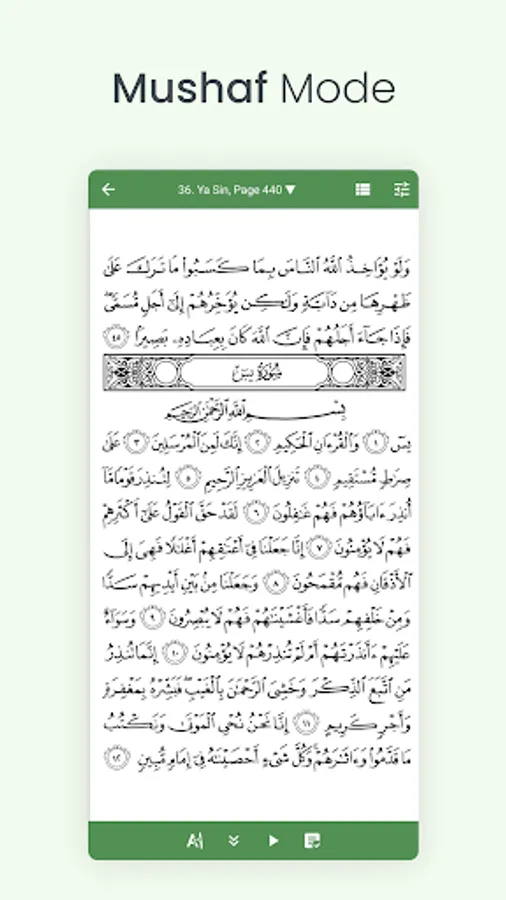 Mushaf Mode
36. Ya Sin, Page 440
وَلَوْ يُؤَاخِذُ ٱللَّهُ ٱلنَّاسَ بِمَا كَسَبُوا۟ مَا تَرَكَ عَلَىٰ
ظَهْرِهَا مِن دَآبَّةٍ وَلَٰكِن يُؤَخِّرُهُمْ إِلَىٰٓ أَجَلٍ مُّسَمًّى ۖ
فَإِذَا جَآءَ أَجَلُهُمْ فَإِنَّ ٱللَّهَ كَانَ بِعِبَادِهِۦ بَصِيرًۢا ٤٥
سُورَةُ يسٓ
بِسْمِ ٱللَّهِ ٱلرَّحْمَٰنِ ٱلرَّحِيمِ
يسٓ ١ وَٱلْقُرْءَانِ ٱلْحَكِيمِ ٢ إِنَّكَ لَمِنَ ٱلْمُرْسَلِينَ ٣ عَلَىٰ
صِرَٰطٍ مُّسْتَقِيمٍ ٤ تَنزِيلَ ٱلْعَزِيزِ ٱلرَّحِيمِ ٥ لِتُنذِرَ قَوْمًا مَّآ
أُنذِرَ ءَابَآؤُهُمْ فَهُمْ غَٰفِلُونَ ٦ لَقَدْ حَقَّ ٱلْقَوْلُ عَلَىٰٓ أَكْثَرِهِمْ
فَهُمْ لَا يُؤْمِنُونَ ٧ إِنَّا جَعَلْنَا فِىٓ أَعْنَٰقِهِمْ أَغْلَٰلًا فَهِىَ إِلَى
ٱلْأَذْقَانِ فَهُم مُّقْمَحُونَ ٨ وَجَعَلْنَا مِنۢ بَيْنِ أَيْدِيهِمْ سَدًّا
وَمِنْ خَلْفِهِمْ سَدًّا فَأَغْشَيْنَٰهُمْ فَهُمْ لَا يُبْصِرُونَ ٩ وَسَوَآءٌ
عَلَيْهِمْ ءَأَنذَرْتَهُمْ أَمْ لَمْ تُنذِرْهُمْ لَا يُؤْمِنُونَ ١٠ إِنَّمَا تُنذِرُ
مَنِ ٱتَّبَعَ ٱلذِّكْرَ وَخَشِىَ ٱلرَّحْمَٰنَ بِٱلْغَيْبِ ۖ فَبَشِّرْهُ بِمَغْفِرَةٍ
وَأَجْرٍ كَرِيمٍ ١١ إِنَّا نَحْنُ نُحْىِ ٱلْمَوْتَىٰ وَنَكْتُبُ
مَا قَدَّمُوا۟ وَءَاثَٰرَهُمْ ۚ وَكُلَّ شَىْءٍ أَحْصَيْنَٰهُ فِىٓ إِمَامٍ مُّبِينٍ ١٢